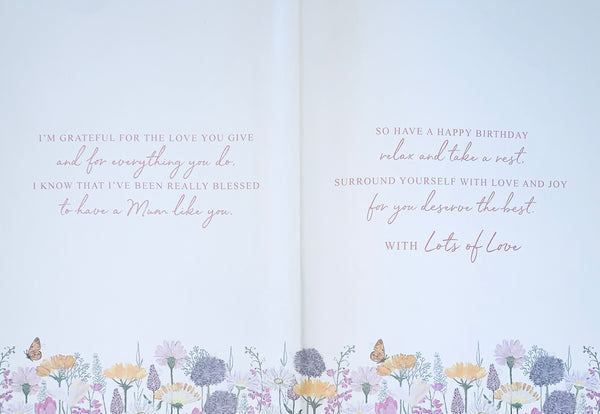 I'M GRATEFUL FOR THE LOVE YOU GIVE
and for everything you do.
I KNOW THAT I'VE BEEN REALLY BLESSED
to have a Mum like you.
SO HAVE A HAPPY BIRTHDAY
relax and take a rest,
SURROUND YOURSELF WITH LOVE AND JOY
for you deserve the best.
WITH Lots of Love